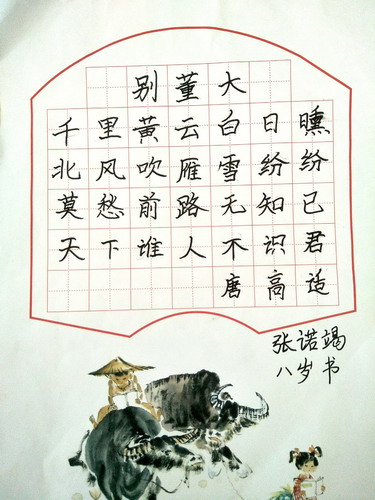 别董大
千里黄云白日曛
北风吹雁雪纷纷
莫愁前路无知己
天下谁人不识君
唐高适
张诺竭
八岁书